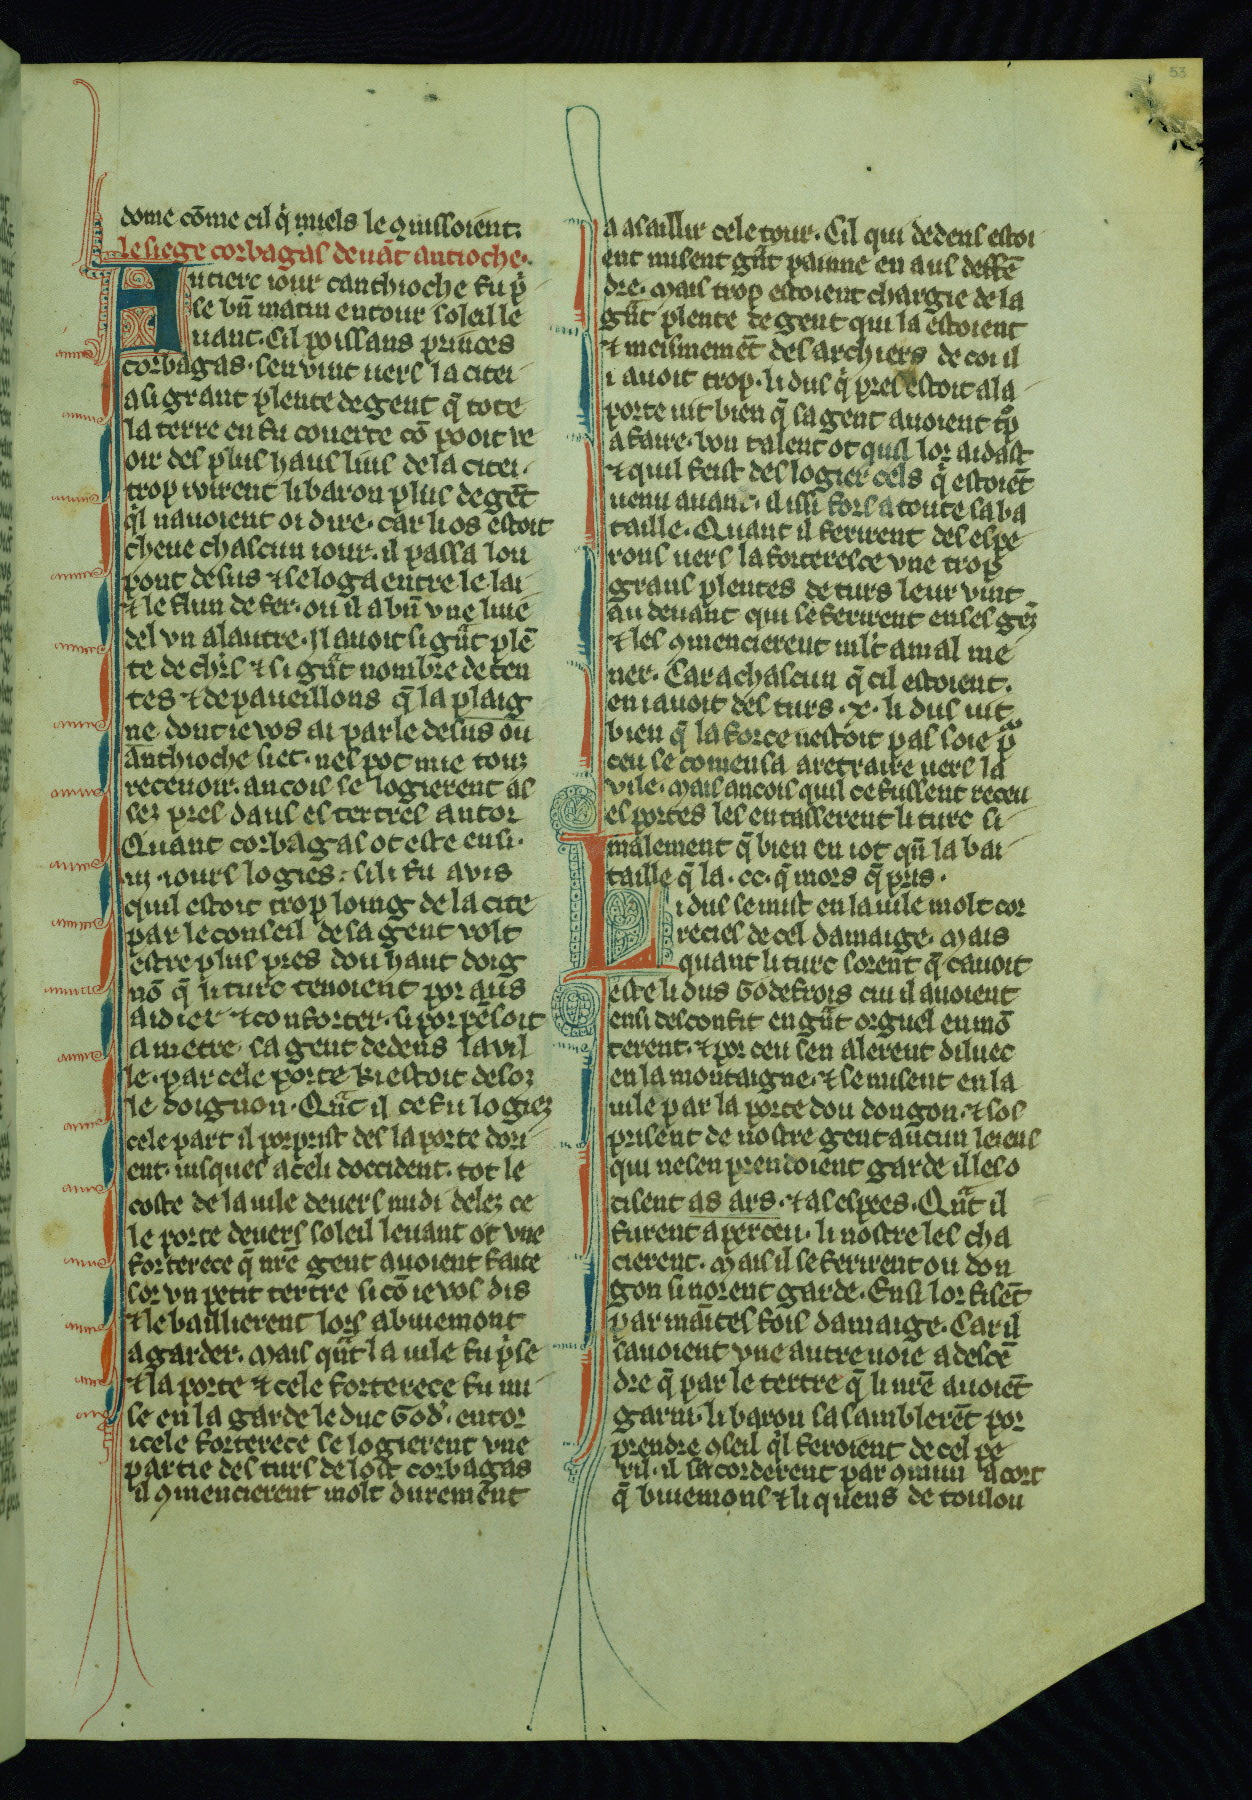 53
dome cōme cil q̇ miels le ꝯnissoient;
le siege corbagas deuāt antioche.
Au tierc iour canthioche fu pͥ
se bñ matin entour soleil le
uant. Cil poissans princes
corbagas. sen vint uers la citei
a si grant plente de gent q̄ tote
la terre en fu couerte cō pooit ve
oir des plus haus lius de la citei.
trop virent li baron plus de gēt
q̇l nauoient oi dire. car li os estoit
cheue chascun iour. il passa lou
pont desus ⁊ se loga entre le lai
⁊ le flun de fer. ou il a bñ vne liue
del vn a lautre. Il auoit si gᷓt plē
te de chr̄s ⁊ si gᷓt nombre de ten
tes ⁊ de paueillons q̄ la plaig
ne dont ie vos ai parle desus ou
anthioche siet. nes pot mie touz
receuoir. ancois se logierent as
sez pres daus es tertres antor
Quant corbagas ot este ensi.
iii. iours logies: si li fu avis
quil estoit trop loing de la cite
par le conseil de sa gent volt
estre plus pres dou haut doig
nō q̄ li turc tenoient por aus
aidier ⁊ conforter. si porpēsoit
a metre sa gent dedens la vil
le. par cele porte ki estoit desoz
le doignon. Qᷓt il ce fu logiez
cele part il porprist des la porte dori
ent. iusques a celi doccident. tot le
coste de la uile deuers midi delez ce
le porte deuers soleil leuant ot vne
forterece q̄ nr̄e gent auoient faite
sor vn petit tertre si cō ie vos dis
⁊ le baillierent lors a buiemont
a garder. Mais qᷓt la uile fu pͥse
⁊ la porte ⁊ cele forterece fu mi
se en la garde le duc God̾. entor
icele forterece se logierent vne
partie des turs de lost corbagas
il ꝯmencierent molt durement
a asaillir cele tour. Cil qui dedens estoi
ent misent gᷓt painne en aus deffē
dre. Mais trop estoient chargie de la
gᷓt plente de gent qui la estoient
⁊ meismemēt des archiers de coi il
i auoit trop. li dus q̇ pres estoit a la
porte uit bien q̄ sa gent auoient tͦp
a faire. bon talent ot quil lor aidast
⁊ quil feist deslogier cels q̇ estoiēt
uenu auant. il issi fors a toute sa ba
taille. Quant il ferirent des espe
rons uers la forteresce vne trop
grans plentes de turs leur vint
au deuant qui se ferirent en ses gēz
⁊ les ꝯmencierent ml't a mal me
ner. Car a chascun q̄ cil estoient.
en i auoit des turs .x. li dus uit
bien q̄ la force nestoit pas soie pͦ
ceu se comensa a retraire uers la
vile. Mais ancois quil ce fussent receu
es portes les entasserent li turc si
malement q̄ bien en iot qn̄ la bai
taille q̄ la .cc. q̄ mors q̄ pris.
Li dus se mist en la uile molt cor
reciés de cel damaige. Mais
quant li turc sorent q̄ cauoit
este li dus Godefrois cui il auoient
ensi desconfit en gᷓt orguel en mō
terent. ⁊ por ceu sen alerent diluec
en la montaigne. ⁊ se misent en la
uile par la porte dou dongon. ⁊ sos
prisent de nostre gent aucun leiens
qui ne sen prendoient garde il les o
cisent as ars. ⁊ as espees. Qᷓt il
furent aperceu. li nostre les cha
cierent. Mais il se ferirent ou don
gon si norent garde. Ensi lor fisēt
par maītes fois damaige. Car il
sauoient vne autre uoie a descē
dre q̄ par le tertre q̄ li nr̄e auoiēt
garni. li baron sasamblerēt por
prendre ꝯseil q̇l feroient de cel pe
ril. il sacorderent par ꝯmun acort
q̄ buiemons ⁊ li quens de toulou